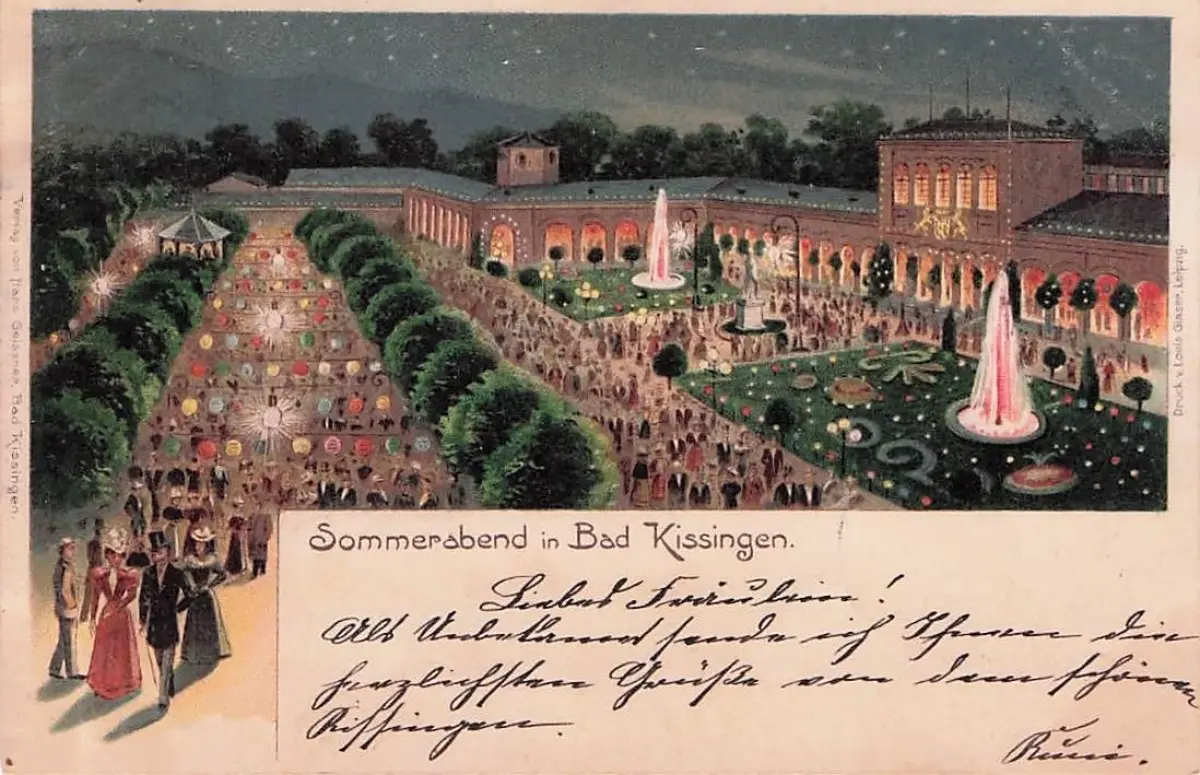 Sommerabend in Bad Kissingen.
Liebes Fräulein!
Als Unbekannt sende ich Ihnen die
herzlichsten Grüße von dem schönen
Kissingen.
Kuni.
Verlag von Hans Geissner, Bad Kissingen.
Druck v. Louis Glaser, Leipzig.